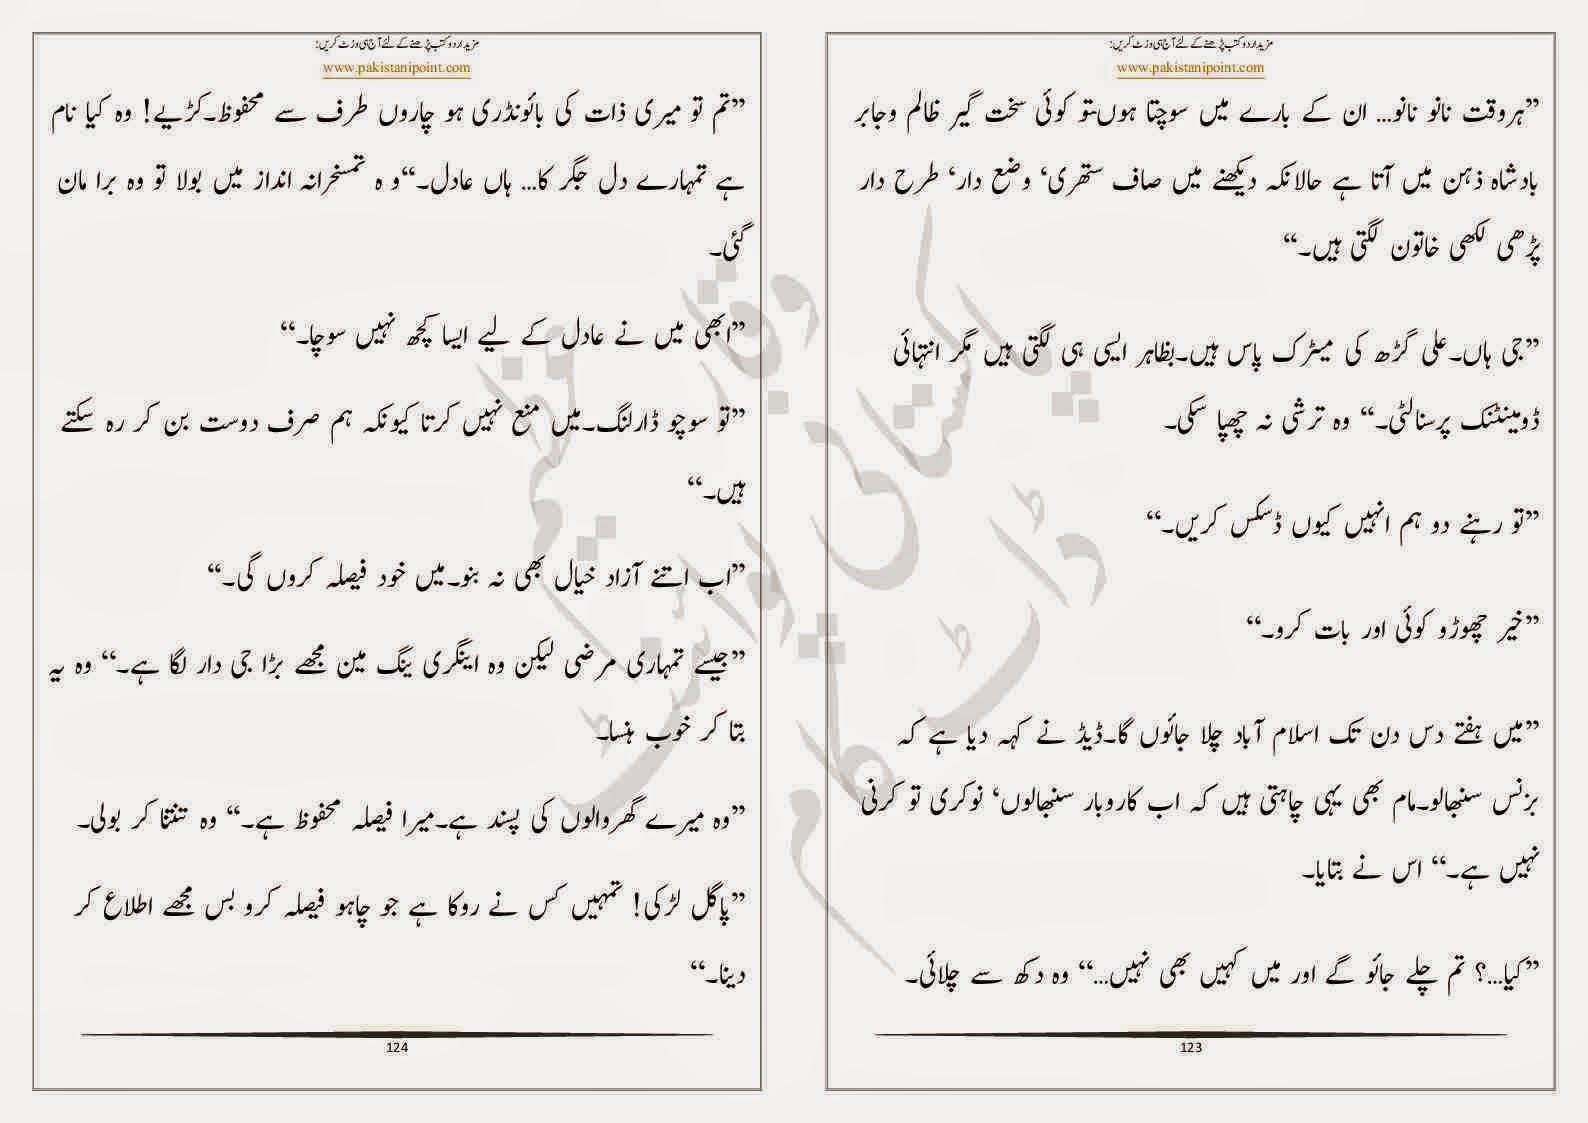 مزید اردو کتب پڑھنے کے لئے آج ہی وزٹ کریں:
www.pakistanipoint.com
”ہروقت نانو نانو... ان کے بارے میں سوچتا ہوں تو کوئی سخت گیر ظالم وجابر
بادشاہ ذہن میں آتا ہے حالانکہ دیکھنے میں صاف ستھری‘ وضع دار‘ طرح دار
پڑھی لکھی خاتون لگتی ہیں۔“
”جی ہاں۔علی گڑھ کی میٹرک پاس ہیں۔بظاہر ایسی ہی لگتی ہیں مگر انتہائی
ڈومینٹنک پرسنالٹی۔“ وہ ترشی نہ چھپا سکی۔
”تو رہنے دو ہم انہیں کیوں ڈسکس کریں۔“
”خیر چھوڑو کوئی اور بات کرو۔“
”میں ہفتے دس دن تک اسلام آباد چلا جائوں گا۔ڈیڈ نے کہہ دیا ہے کہ
بزنس سنبھالو۔مام بھی یہی چاہتی ہیں کہ اب کاروبار سنبھالوں‘ نوکری تو کرنی
نہیں ہے۔“ اس نے بتایا۔
”کیا...؟ تم چلے جائو گے اور میں کہیں بھی نہیں...“ وہ دکھ سے چلائی۔
123
مزید اردو کتب پڑھنے کے لئے آج ہی وزٹ کریں:
www.pakistanipoint.com
”تم تو میری ذات کی بائونڈری ہو چاروں طرف سے محفوظ۔کڑیے! وہ کیا نام
ہے تمہارے دل جگر کا... ہاں عادل۔“و ہ تمسخرانہ انداز میں بولا تو وہ برا مان
گئی۔
”ابھی میں نے عادل کے لیے ایسا کچھ نہیں سوچا۔“
”تو سوچو ڈارلنگ۔میں منع نہیں کرتا کیونکہ ہم صرف دوست بن کر رہ سکتے
ہیں۔“
”اب اتنے آزاد خیال بھی نہ بنو۔میں خود فیصلہ کروں گی۔“
”جیسے تمہاری مرضی لیکن وہ اینگری ینگ مین مجھے بڑا جی دار لگا ہے۔“ وہ یہ
بتا کر خوب ہنسا۔
”وہ میرے گھروالوں کی پسند ہے۔میرا فیصلہ محفوظ ہے۔“ وہ تنتنا کر بولی۔
”پاگل لڑکی! تمہیں کس نے روکا ہے جو چاہو فیصلہ کرو بس مجھے اطلاع کر
دینا۔“
124
پاکستانی پوائنٹ ڈاٹ کام